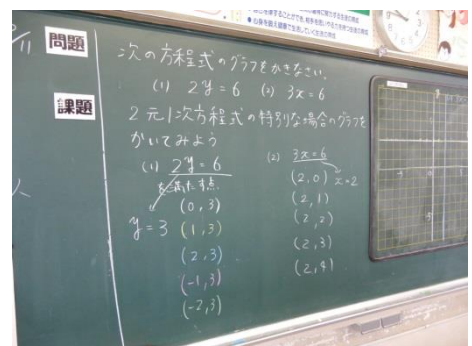 /11
問題
次の方程式のグラフをかきなさい。
(1) 2y=6 (2) 3x=6
課題
2元1次方程式の特別な場合のグラフを
かいてみよう
(1) 2y=6
を満たす点
(0,3)
y=3 (1,3)
(2,3)
(-1,3)
(-2,3)
(2) 3x=6
(2,0) x=2
(2,1)
(2,2)
(2,3)
(2,4)